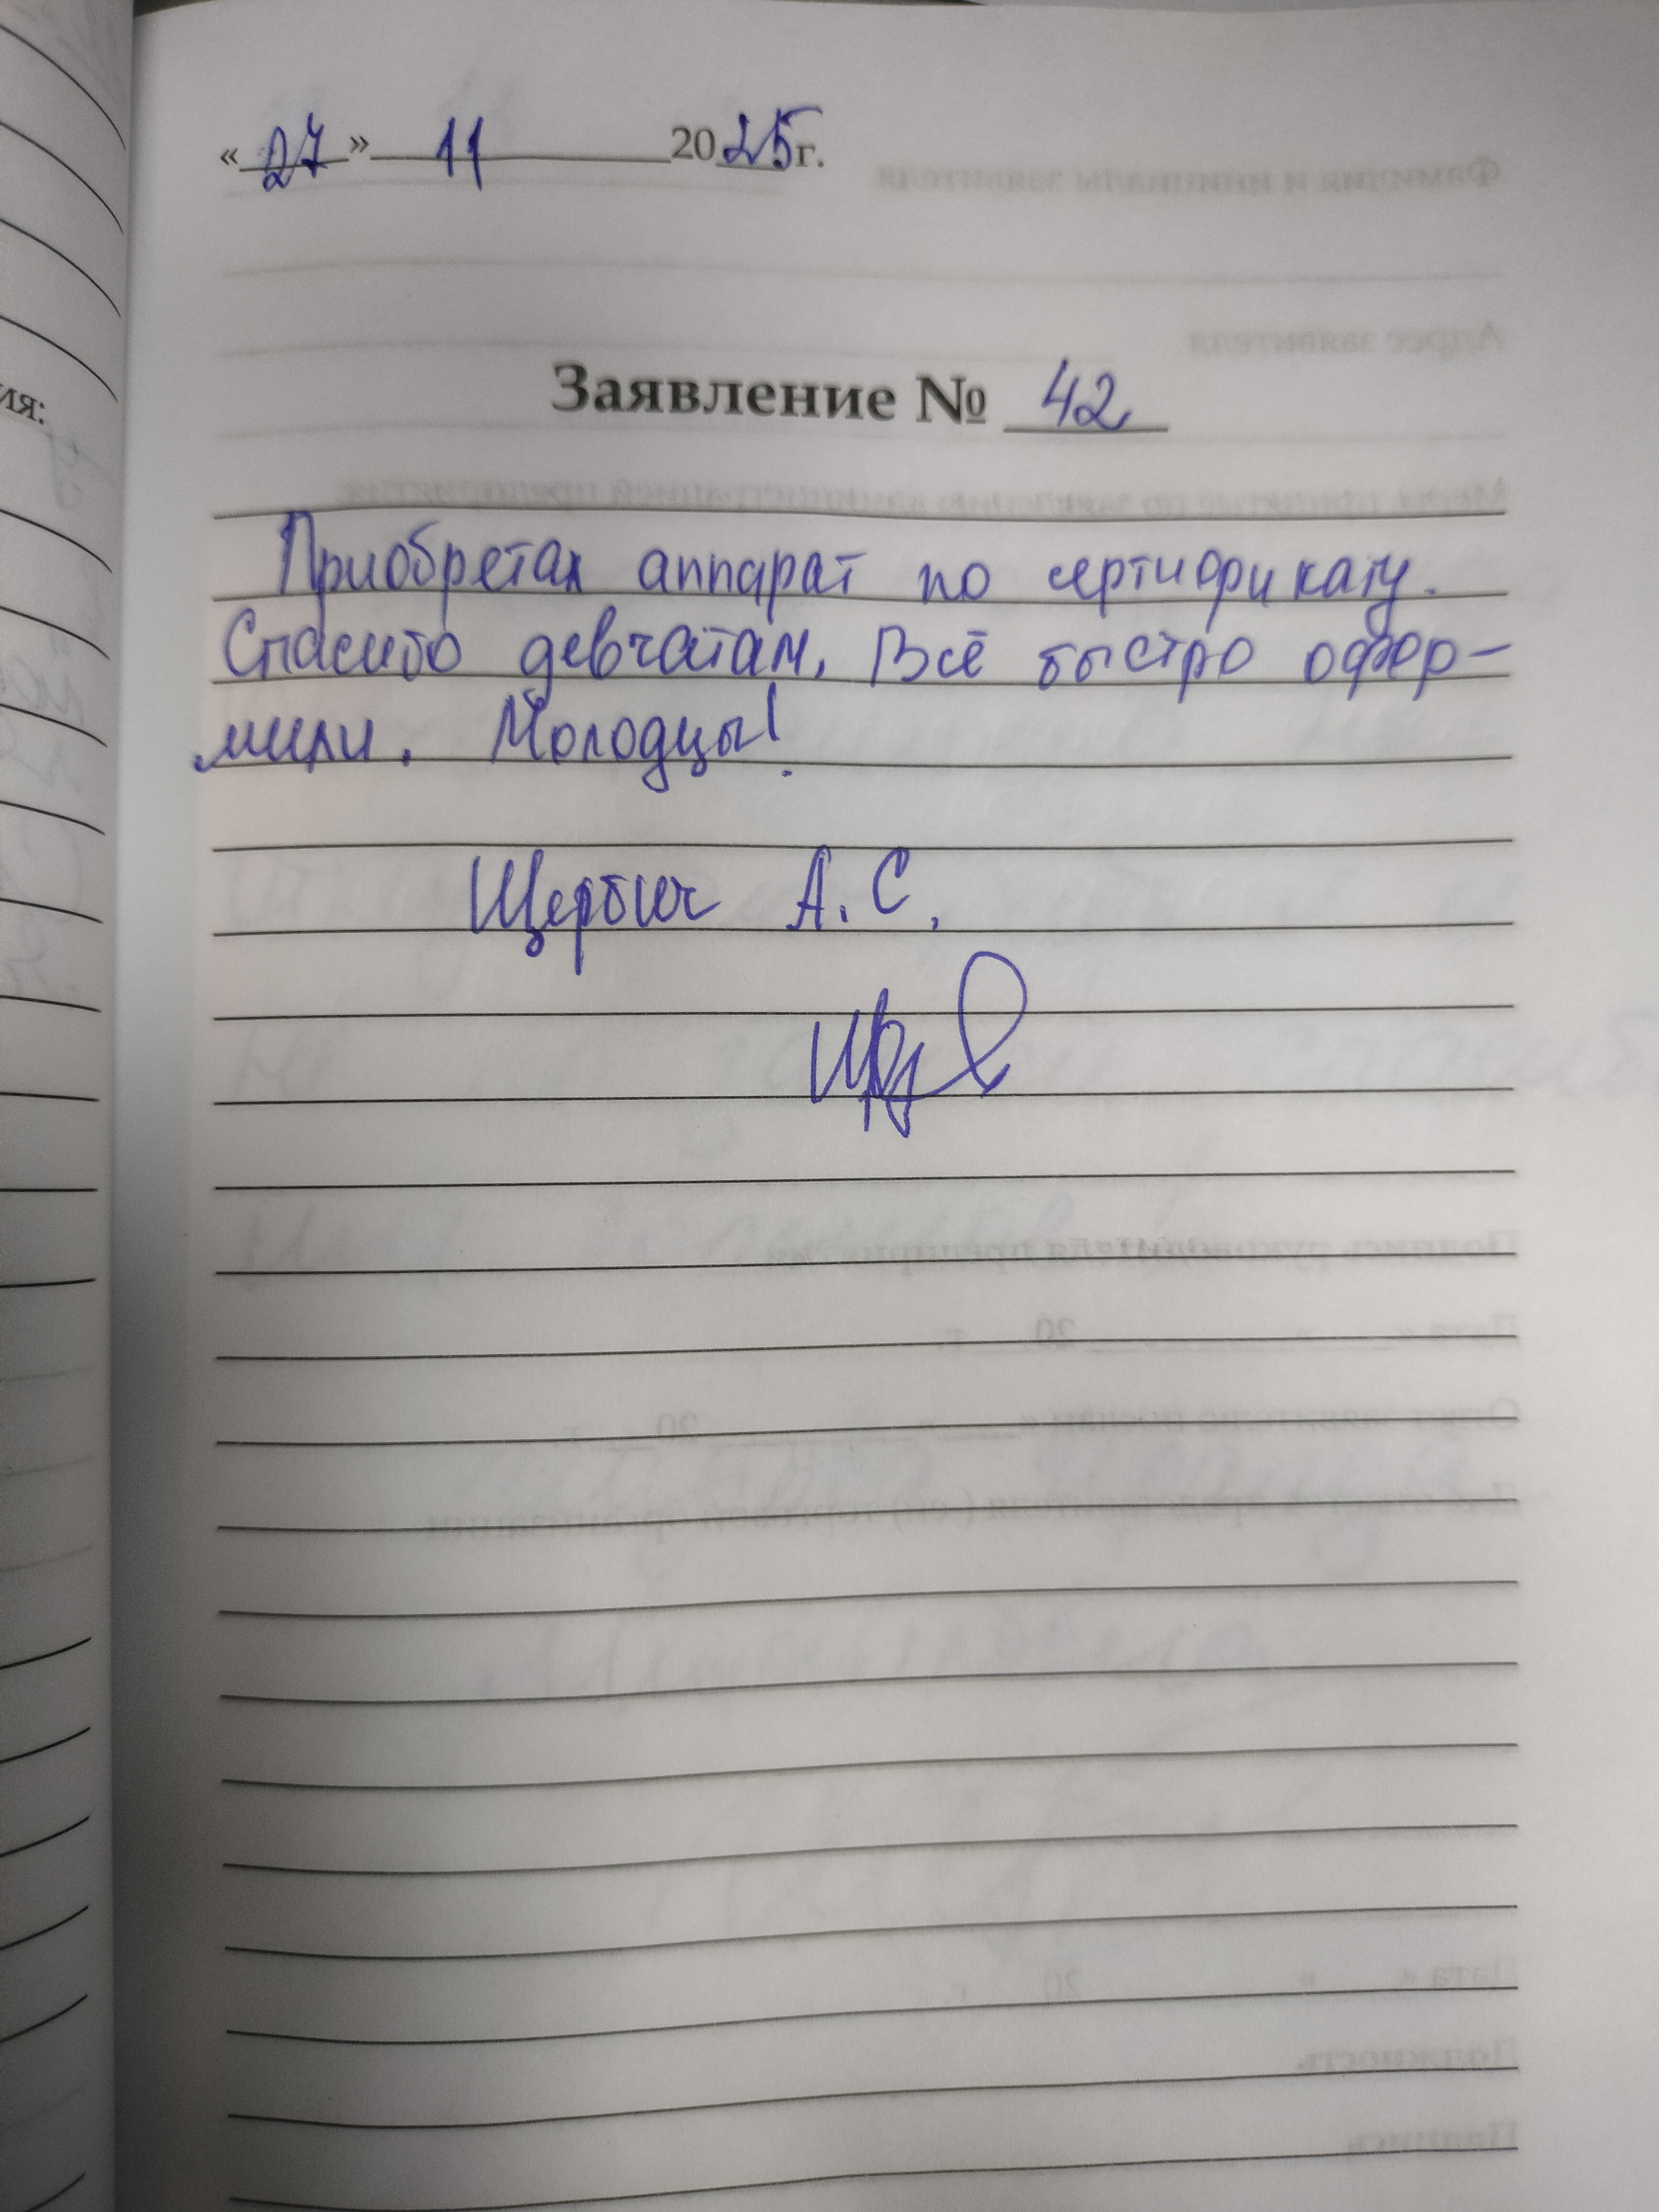 «27» 11 2025г.
Заявление № 42
Приобретал аппарат по сертификату.
Спасибо девчатам, Всё быстро офор-
мили. Молодцы!
Щербич А.С.
ия: